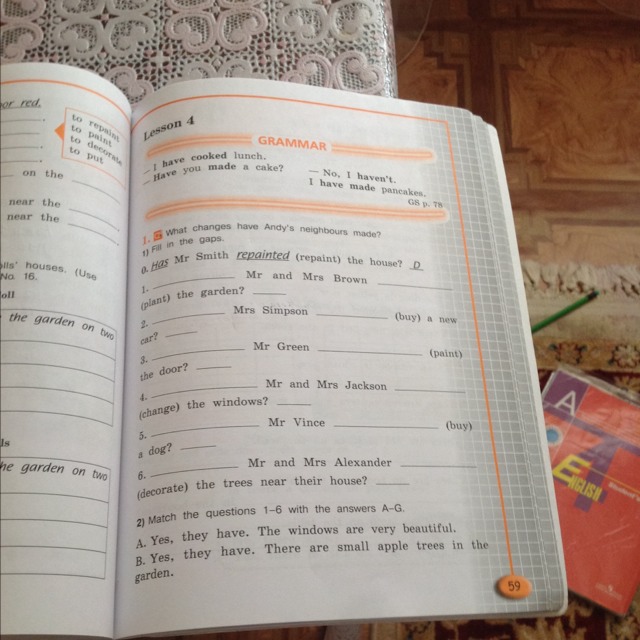 or red.
to repaint
to paint
to decorate
to put
on the
near the
near the
houses. (Use
No. 16.
the garden on two
he garden on two
Lesson 4
GRAMMAR
— I have cooked lunch.
— Have you made a cake?
— No, I haven't.
I have made pancakes.
GS p. 78
1. What changes have Andy's neighbours made?
1) Fill in the gaps.
0. Has Mr Smith repainted (repaint) the house? D
1. ____ Mr and Mrs Brown ____
(plant) the garden? ____
2. ____ Mrs Simpson ____ (buy) a new
car? ____
3. ____ Mr Green ____ (paint)
the door? ____
4. ____ Mr and Mrs Jackson ____
(change) the windows? ____
5. ____ Mr Vince ____ (buy)
a dog? ____
6. ____ Mr and Mrs Alexander ____
(decorate) the trees near their house? ____
2) Match the questions 1–6 with the answers A–G.
A. Yes, they have. The windows are very beautiful.
B. Yes, they have. There are small apple trees in the
garden.
59
A
ENGLISH